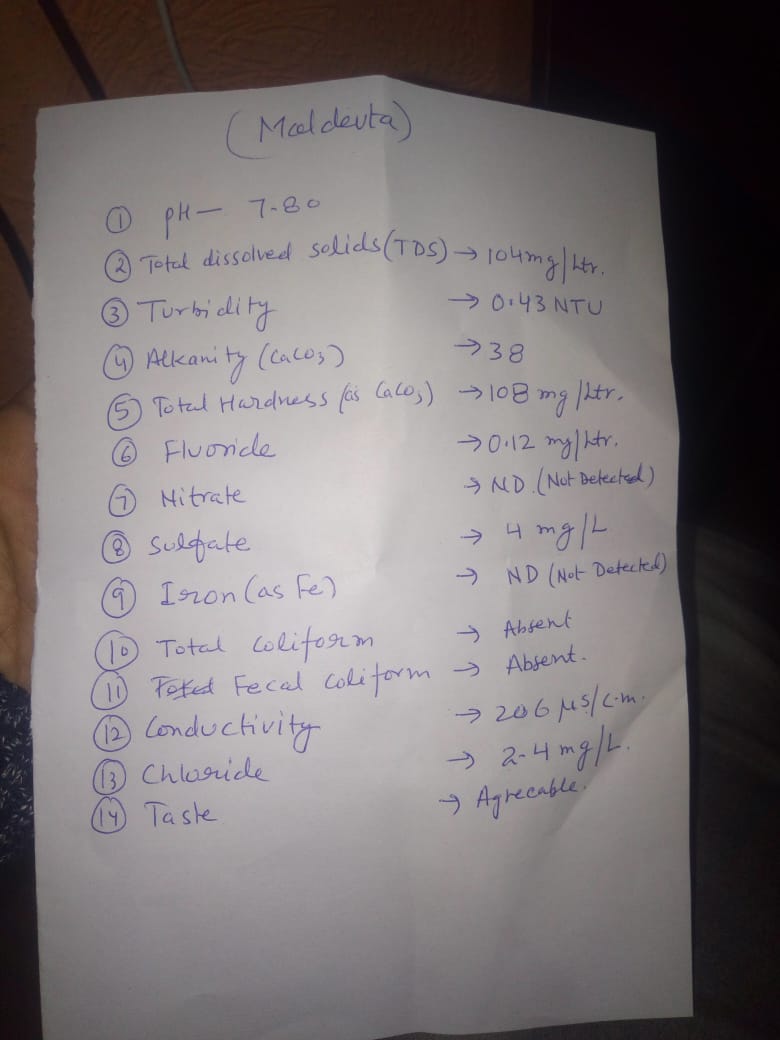 (Maldevta)
① pH — 7.80
② Total dissolved solids (TDS) → 104 mg/Ltr.
③ Turbidity → 0.43 NTU
④ Alkanity (CaCO3) → 38
⑤ Total Hardness (as CaCO3) → 108 mg/Ltr.
⑥ Fluoride → 0.12 mg/Ltr.
⑦ Nitrate → ND. (Not Detected)
⑧ Sulfate → 4 mg/L
⑨ Iron (as Fe) → ND (Not Detected)
⑩ Total coliform → Absent
⑪ Fecal coliform → Absent.
⑫ Conductivity → 206 μs/c.m.
⑬ Chloride → 2.4 mg/L.
⑭ Taste → Agreeable.